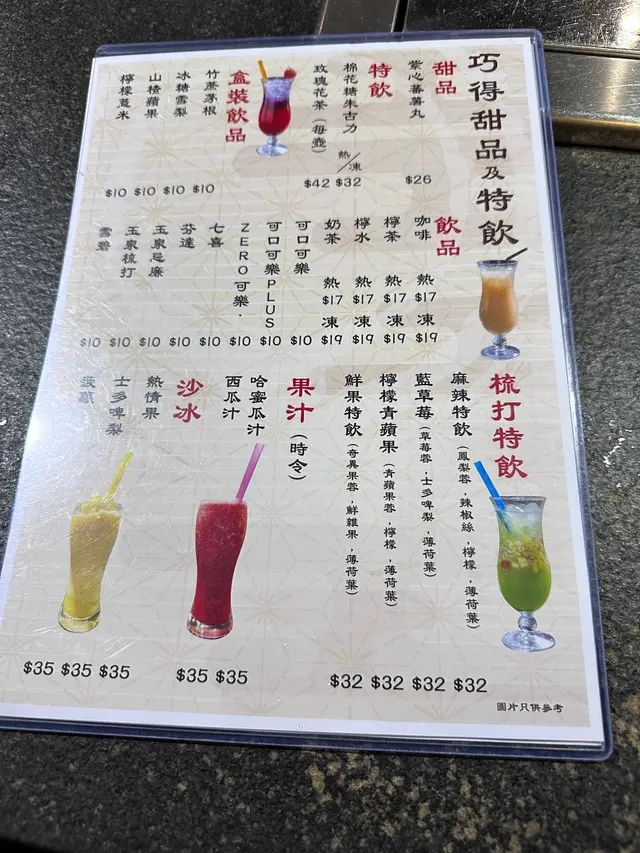 巧得甜品及特飲
甜品
紫心蕃薯丸
$26
特飲
棉花糖朱古力 熱/凍
$32
玫瑰花茶（每壺）
$42
盒裝飲品
竹蔗茅根
$10
冰糖雪梨
$10
山楂蘋果
$10
檸檬薏米
$10
飲品
咖啡 熱 $17 凍 $19
檸茶 熱 $17 凍 $19
檸水 熱 $17 凍 $19
奶茶 熱 $17 凍 $19
可口可樂
$10
可口可樂PLUS
$10
ZERO可樂．
$10
七喜
$10
芬達
$10
玉泉忌廉
$10
玉泉梳打
$10
雪碧
$10
梳打特飲
麻辣特飲（鳳梨蓉，辣椒絲，檸檬，薄荷葉）
$32
藍草莓（草莓蓉，士多啤梨，薄荷葉）
$32
檸檬青蘋果（青蘋果蓉，檸檬，薄荷葉）
$32
鮮果特飲（奇異果蓉，鮮雜果，薄荷葉）
$32
果汁（時令）
哈蜜瓜汁
$35
西瓜汁
$35
沙冰
熱情果
$35
士多啤梨
$35
菠蘿
$35
圖片只供參考